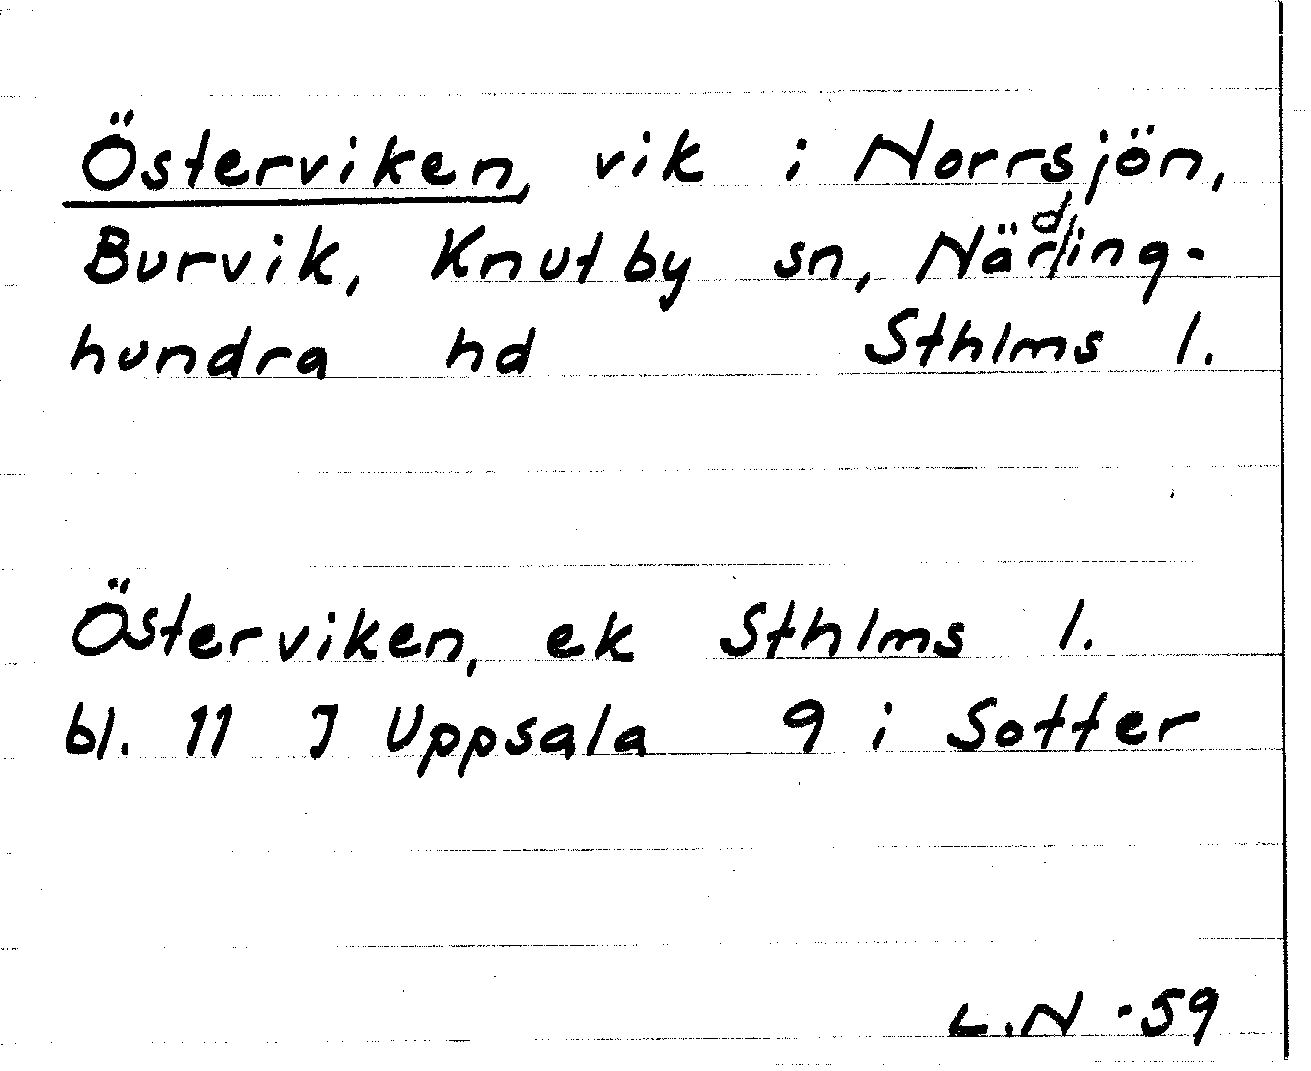 Österviken, vik i Norrsjön,
Burvik, Knutby sn, Närding-
hundra hd Sthlms l.
Österviken, ek Sthlms l.
bl. 11 J Uppsala 9 i Sotter
L.N -59